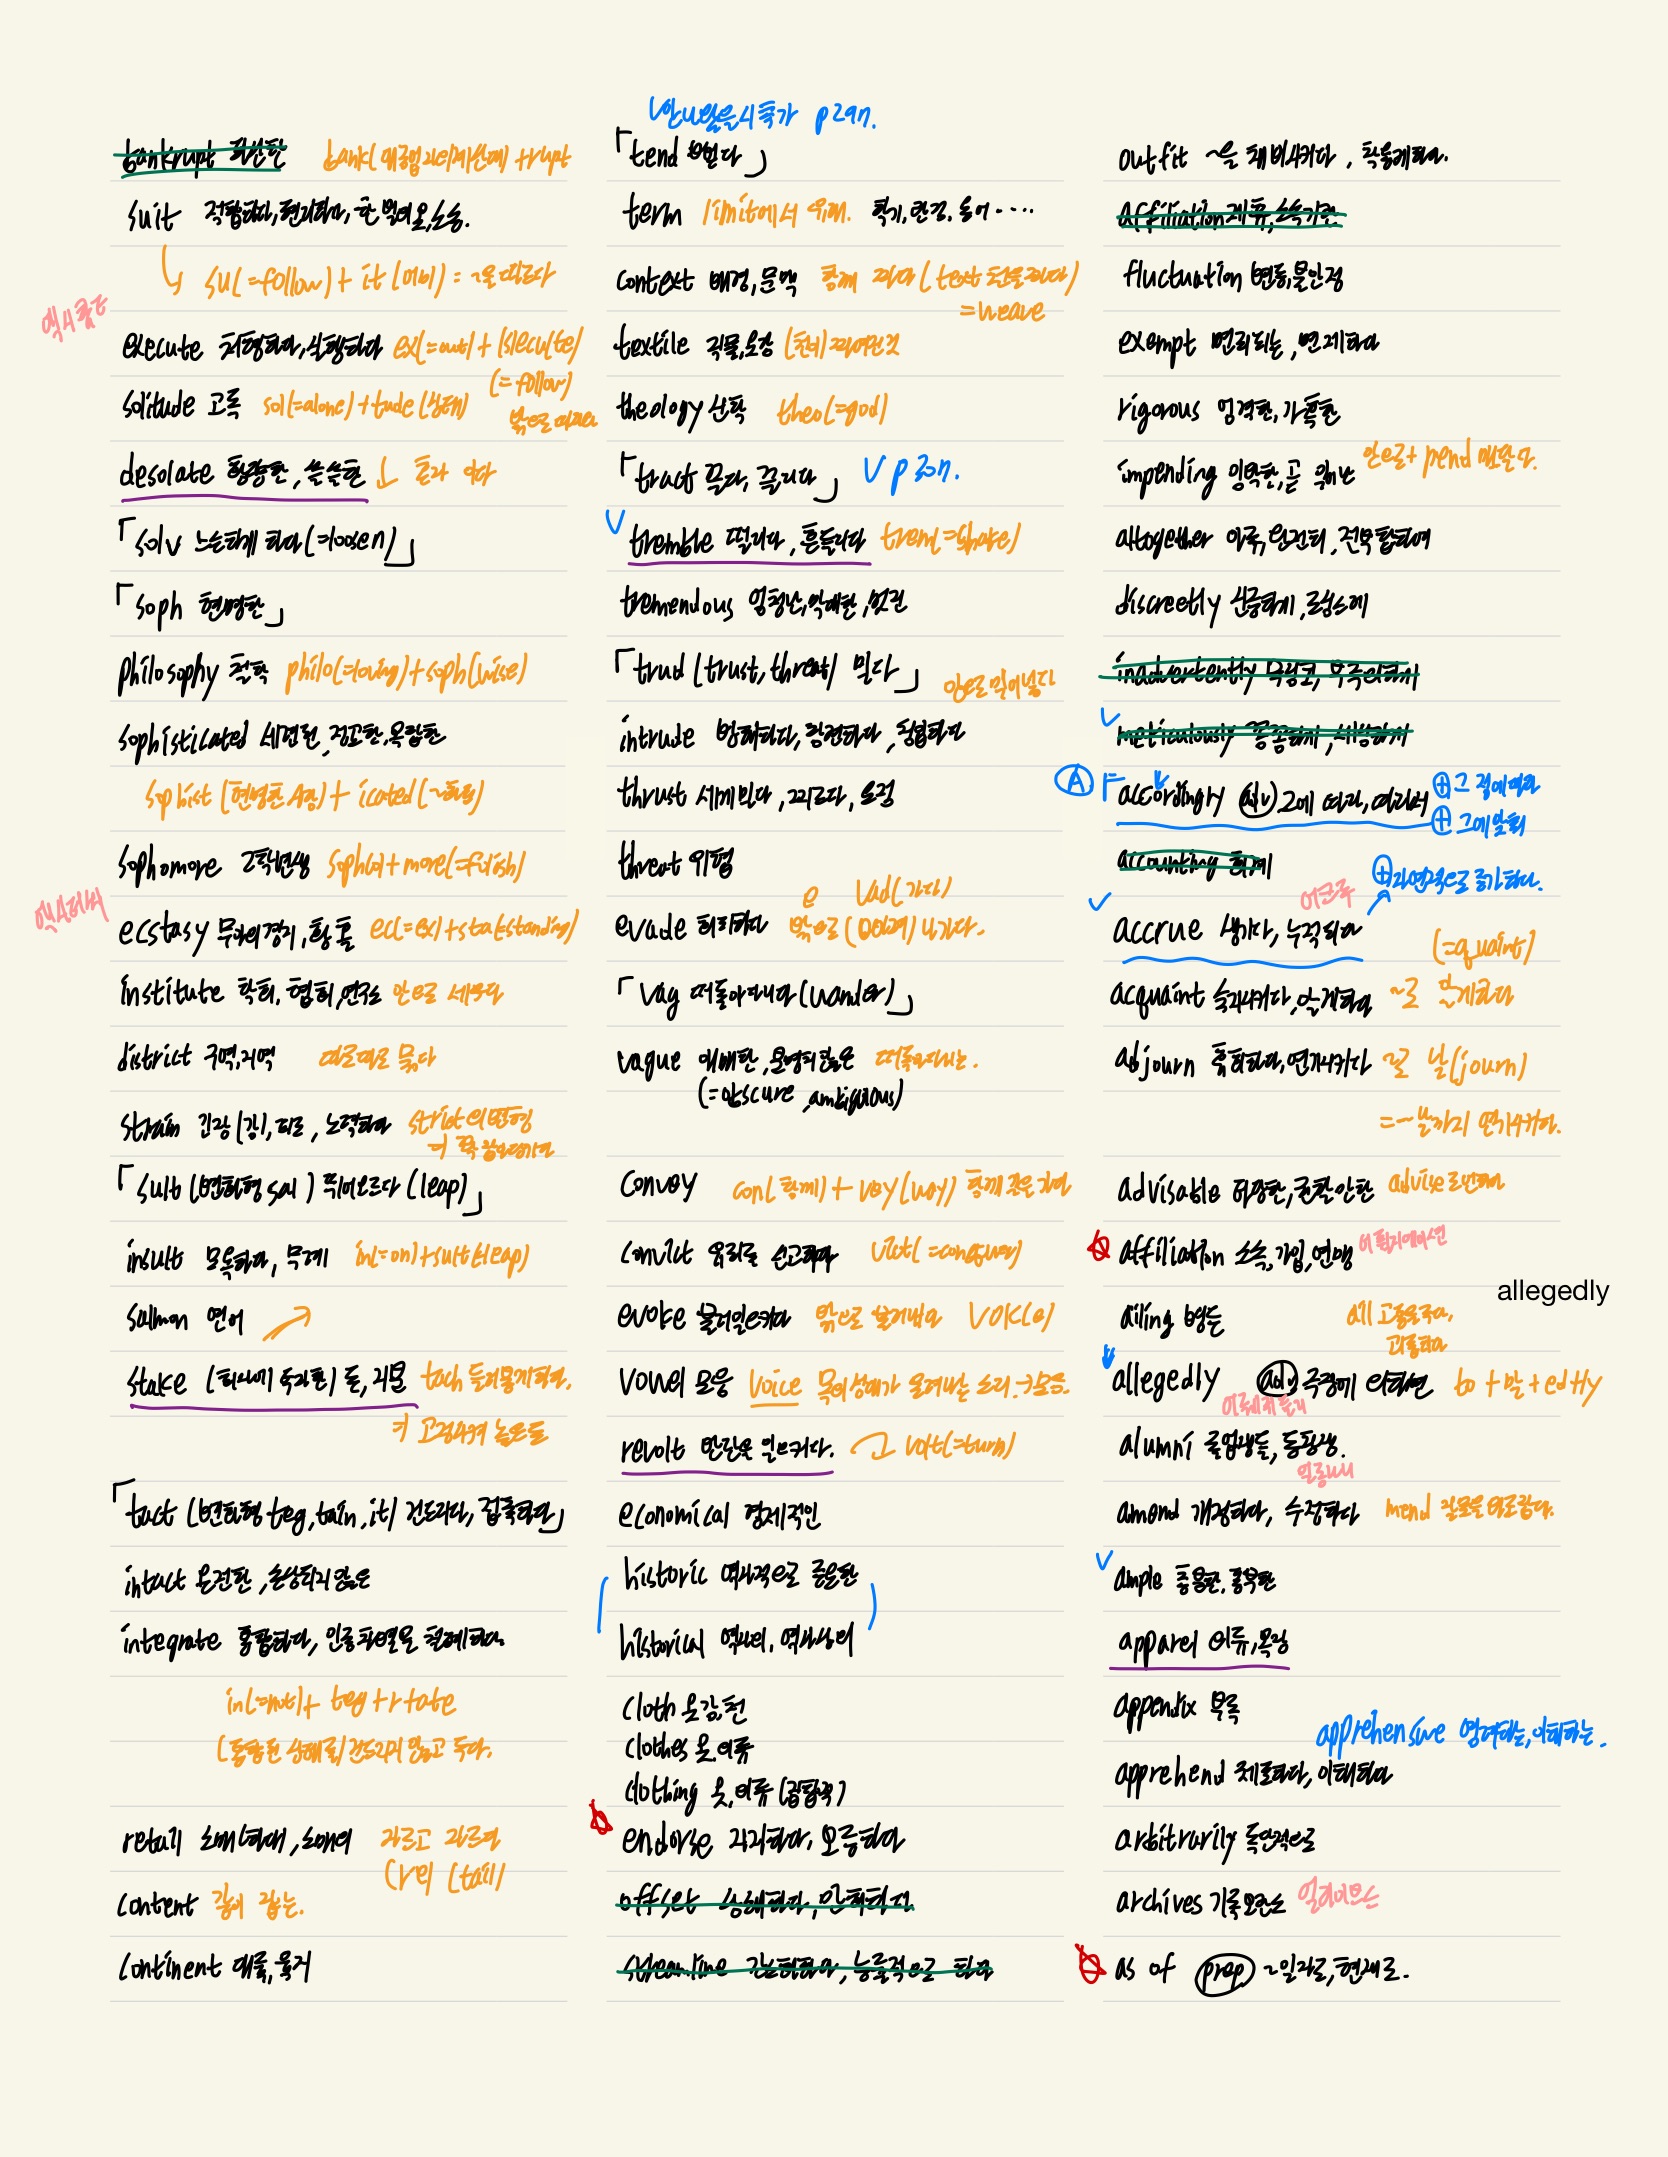 bankrupt 파산한 bank( +rupt
suit 적합하다, 편리하다, 한 벌의 옷, 소송.
su(=follow) + it (어미) = ~을 따르다
execute 처형하다, 실행하다 ex(=out) + (s)ecu(te)
(=follow)
solitude 고독 sol(=alone)+tude (상태)
밖으로 따르다
desolate 황량한, 쓸쓸한
「solv 느슨하게 하다(=loosen)」
「soph 현명한」
philosophy 철학 philo(=loving)+soph(wise)
sophisticated 세련된, 정교한, 복잡한
sophist (현명한 사람) + icated (~화된)
sophomore 2학년생 sopho+more(=foolish)
ecstasy 무아의 경지, 황홀 ec(=ex)+sta(standing)
institute 학회, 협회, 연구소 안으로 세우다
district 구역, 지역 따로따로 묶다
strain 긴장(감), 피로, 노력하다 strict의 변형
「sult (변화형 sal) 뛰어오르다 (leap)」
insult 모욕하다, 무례 in(=on)+sult(leap)
salmon 연어
stake (회사에 투자한) 돈, 지분 tach 들러붙게 하다.
고정시켜 놓은 돈
「tact (변화형 teg, tain, it) 건드리다, 접촉하다」
intact 온전한, 손상되지 않은
integrate 통합하다, 인종차별을 철폐하다.
in(=not)+ teg +r+ate
건드리지 않고 두다.
retail 소매(판매), 소매의 자르고 자르다
(re) (tail)
content 같이 잡는.
continent 대륙, 육지
p297.
「tend 뻗다」
term limit에서 유래. 학기, 만기, 용어 ····
context 배경, 문맥 함께 짜다 (text 천을 짜다)
=weave
textile 직물, 옷감 (천이) 짜여진 것
theology 신학 theo(=god)
「tract 끌다, 끌리다」 V p307.
tremble 떨리다, 흔들리다 trem(=shake)
tremendous 엄청난, 막대한, 멋진
「trud (trust, threat) 밀다」
안으로 밀어넣다
intrude 방해하다, 참견하다, 침범하다
thrust 세게 밀다, 찌르다, 요점
threat 위협
e vad(가다)
evade 회피하다 밖으로 나가다.
「vag 떠돌아다니다(wander)」
vague 애매한, 분명치 않은 떠돌아다니는.
(=obscure, ambiguous)
convoy con(함께) + voy(way) 함께 길을 가다
convict 유죄를 선고하다 vict(=conquer)
evoke 불러일으키다 밖으로 불러내다 vok(e)
vowel 모음 voice 목의 성대가 울려나는 소리 → 모음.
revolt 반란을 일으키다. volt(=turn)
economical 경제적인
historic 역사적으로 중요한
historical 역사의, 역사상의
cloth 옷감, 천
clothes 옷, 의류
clothing 옷, 의류 (집합적)
endorse 지지하다, 보증하다
offset 상쇄하다, 만회하다
streamline 간소화하다, 능률적으로 하다
outfit ~을 채비시키다, 착용케하다.
affiliation 제휴, 소속기관
fluctuation 변동, 불안정
exempt 면제되는, 면제하다
rigorous 엄격한, 가혹한
impending 임박한, 곧 있을 안으로+ pend 매달다.
altogether 아주, 완전히, 전부 합하여
discreetly 신중하게, 조심스레
inadvertently 무심코, 부주의하게
meticulously 꼼꼼하게, 세심하게
Ⓐ accordingry adv 그에 따라, 따라서 ⊕ 그 점에 따라
⊕ 그에 알맞게
accounting 회계
어크루 ⊕ 자연적으로 증가하다.
accrue 생기다, 누적되다
(=quaint)
acquaint 숙지시키다, 알게하다 ~로 알게하다
adjourn 휴회하다, 연기시키다 ~로 날(journ)
= ~날까지 연기시키다.
advisable 타당한, 권할만한 advise
affiliation 소속, 가입, 연맹 어필리에이션
allegedly
ailing 병든 ail 고통을 주다,
괴롭히다
allegedly adv 주장에 의하면 to + 말 + ed+ly
alumni 졸업생들, 동창생.
알룸나이
amend 개정하다, 수정하다 mend 잘못을 바로잡다.
ample 충분한, 풍부한
apparel 의류, 복장
appendix 부록
apprehensive 염려하는, 이해하는.
apprehend 체포하다, 이해하다
arbitrarily 독단적으로
archives 기록 보관소
as of prep ~일자로, 현재로.